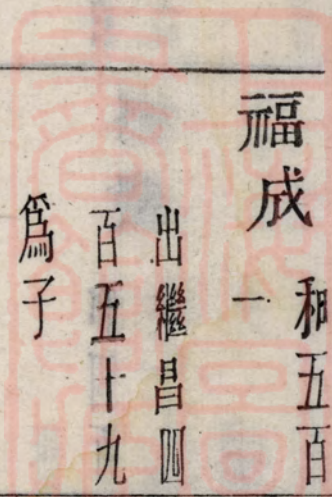 福成
和五百
一
出繼昌四
百五十九
爲子